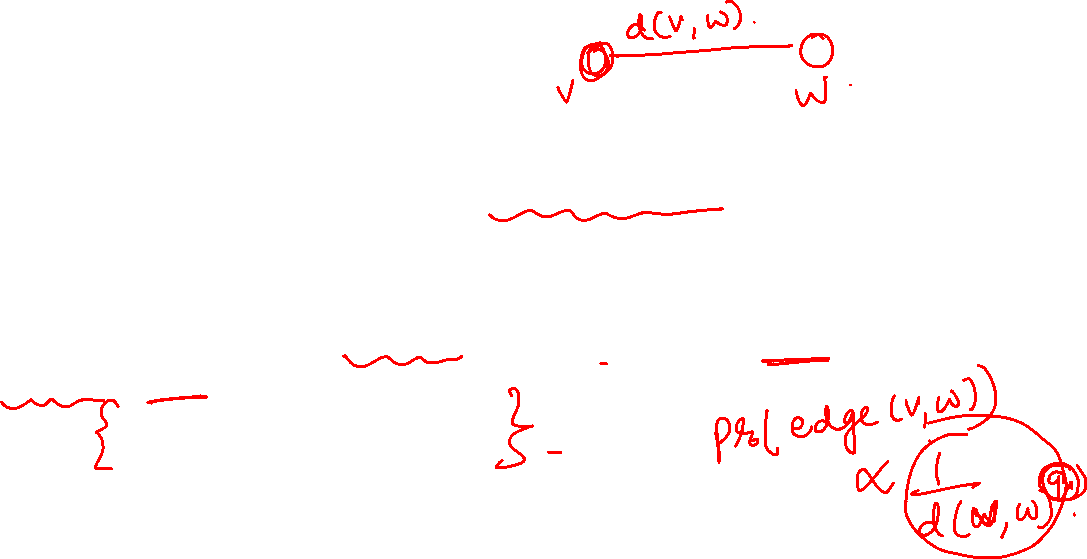 d(v, w).
v w.
{ }
pr(edge(v,w))
∝ 1
d(v,w) q